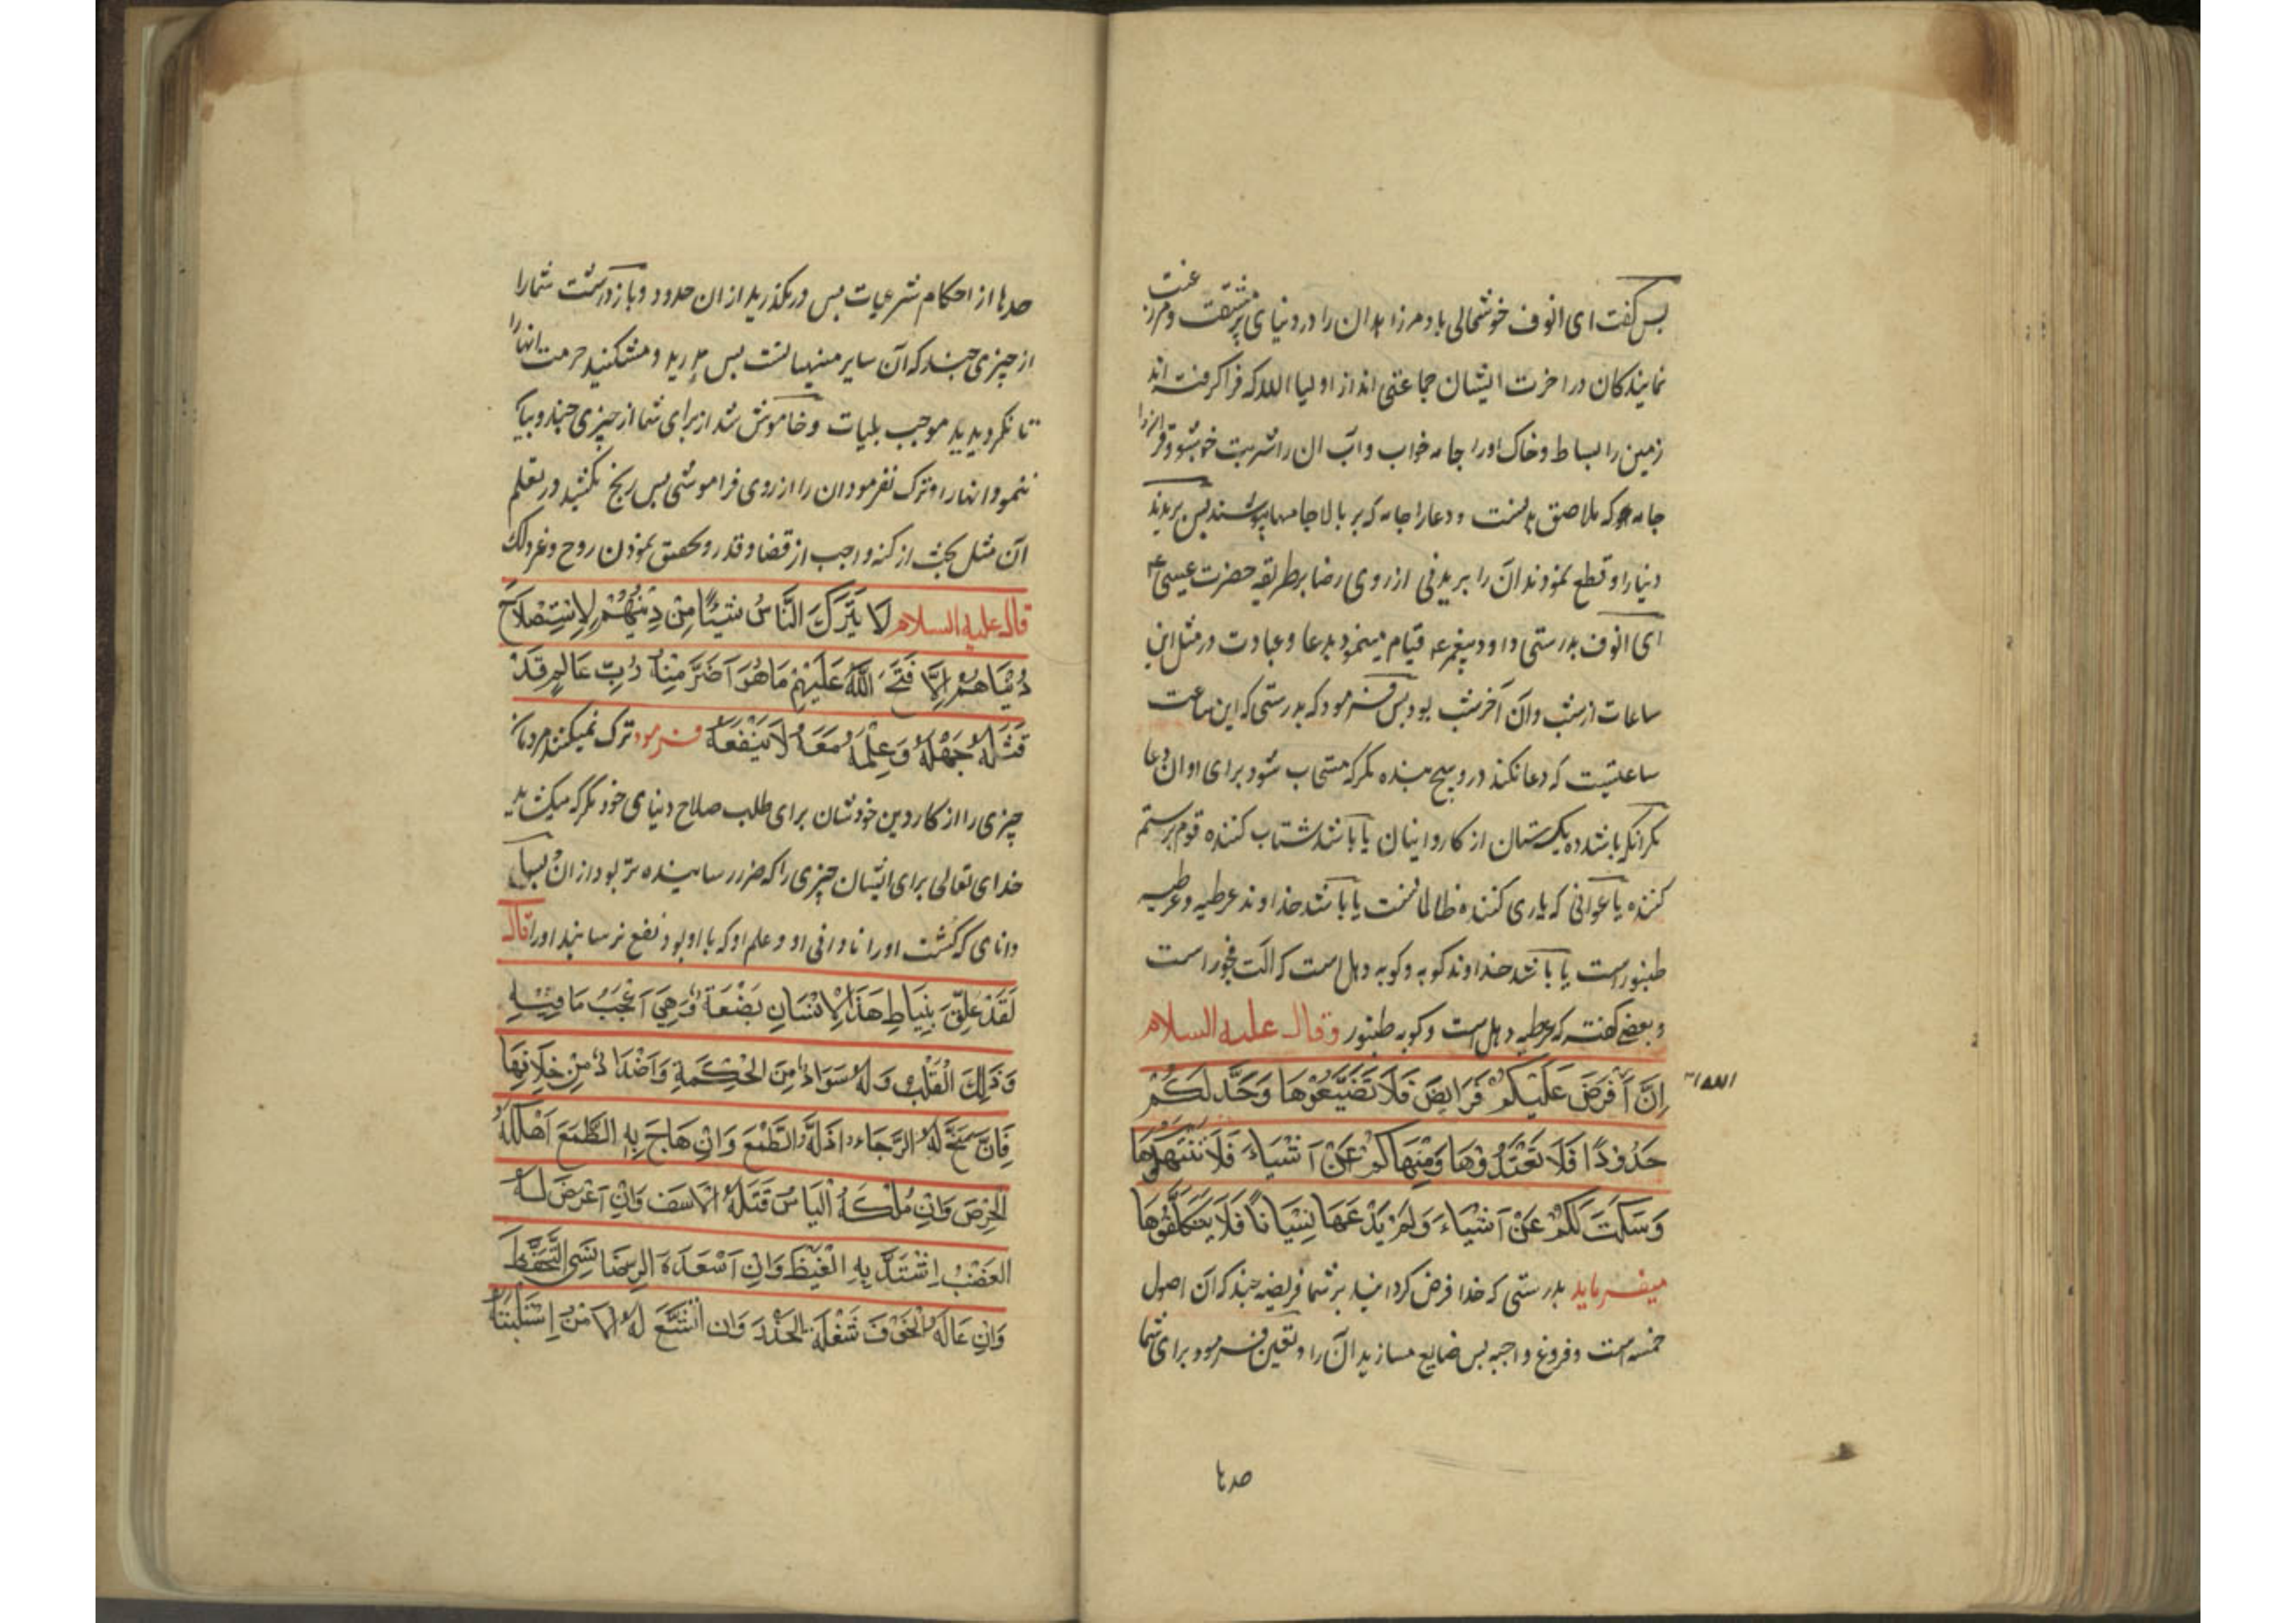 پس گفت ای انوف خوشحالی باد مر زاهدان را در دنیای پر مشقت و مر رغبت
نمایندکان در اخرت ایشان جماعتی اند از اولیا الله که فرا گرفته اند
زمین را بساط و خاک اورا جامه خواب و آب ان را شربت خوشبو و قرانرا
جامه که ملاصق بدنست و دعا را جامه که بر بالا جامها پوشند پس بریدند
دنیا را و قطع نمودند آن را بریدنی از روی رضا بر طریقه حضرت عیسی ع
ای انوف بدرستی داود پیغمبر ع قیام مینمود بدعا و عبادت در مثل این
ساعات از شب و آن آخر شب بود پس فرمود که بدرستی که این ساعت
ساعتیست که دعا نکند درو هیچ بنده مکر که مستجاب شود برای او ان دعا
مکر انکه باشد ده یک ستان از کاروانیان یا باشد شتاب کننده قوم بر ستم
کننده یا عوانی که یاری کننده ظالمانست یا باشد خداوند عرطبه و عرطبه
طنبور است یا باشد خداوند کوبه و کوبه دهل است که الت فجور است
و بعضی کفته که عرطبه دهل است و کوبه طنبور وقال علیه السلام
اِنَّ اَفْرَضَ عَلَيْكُمْ فَرَايِضَ فَلَا تَضَيَّعُوْهَا وَحَدَّ لَكُمْ
الله
حَدُوْدًا فَلَا تَعْتَدُوْهَا وَمَنِهَاكُمْ عَنْ اَشْيَاءَ فَلَا تَنْتَهِكُوْهَا
وَسَكَتَ لَكُمْ عَنْ اَشْيَاءَ وَلَمْ يَدْعَهَا نِسْيَانًا فَلَا يَتَكَلَّفُوْهَا
میفرماید بدرستی که خدا فرض کردانید بر شما فریضه چند که آن اصول
خمسه است و فروع واجبه پس ضایع مسازید آن را و تعین فرمود برای شما
حدها
حدها از احکام شرعیات پس در مکذرید از ان حدود و باز داشت شما را
از چیزی چند که آن سایر منهیاتست پس مدرید و مشکنید حرمت انها را
تا نکردیدید موجب بلیات و خاموش شد از برای شما از چیزی چند و بیان
ننمود انها را و ترک نفرمود ان را از روی فراموشی پس رنج نکشید در تعلم
آن مثل بحث از کنه واجب از قضا و قدر و تحقیق نمودن روح و غیر ذلک
قال علیه السلام لَا يَتْرَكَ النَّاسُ شَيْئًا مِنْ دِيْنِهُمْ لِاِسْتِصْلَاحِ
دُنْيَاهُمْ اِلَّا فَتَحَ اللّٰهُ عَلَيْهِمْ مَا هُوَ اَضَرَّ مِنْهُ رُبِّ عَالِمٍ قَدْ
قَتَلَهُ جَهْلَهُ وَعِلْمَهُ مَعَهُ لَا يَنْفَعَهُ فرمود ترک نمیکنند مردمان
چیزی را از کار دین خودشان برای طلب صلاح دنیای خود مکر که میکشاید
خدای تعالی برای ایشان چیزی را که ضرر رساینده تر بود از ان بسا
دانای که کشت اورا نادانی او و علم او که با او بود نفع نرسانید اورا قال
لَقَدْ عَلِّقَ بِنِيَاطِ هَذَا الْاِنْسَانِ بَضْعَةٌ وَهِيَ اَعْجَبُ مَا فِيْهِ
وَذٰلِكَ الْقَلْبُ وَلَهُ سَوَادٌ مِنَ الْحِكْمَةِ وَاَضْدَادٌ مِنْ خِلَافِهَا
فَاِنَّ سَنَحَ لَهُ الرَّجَاءُ اَذَلَّهُ الطَّمَعَ وَاِنْ هَاجَ بِهِ الطَّمَعَ اَهْلَكَهُ
الْحِرْصَ وَاِنْ مَلَكَهُ الْيَاسُ قَتَلَهُ الْاَسَفَ وَاِنْ اَعْرَضَ لَهُ
الغَضَبُ اِشْتَدَّ بِهِ الْغَيْظَ وَاِنْ اَسْعَدَهَ الرِضَا نَسِيَ التَّحَفُّظَ
وَاِنْ عَالَهُ الْخَوْفَ شَغَلَهُ الْحَذَرَ وَاِن اتَّسَعَ لَهُ الْاَمْنُ اِسْتَلَبَتْهُ